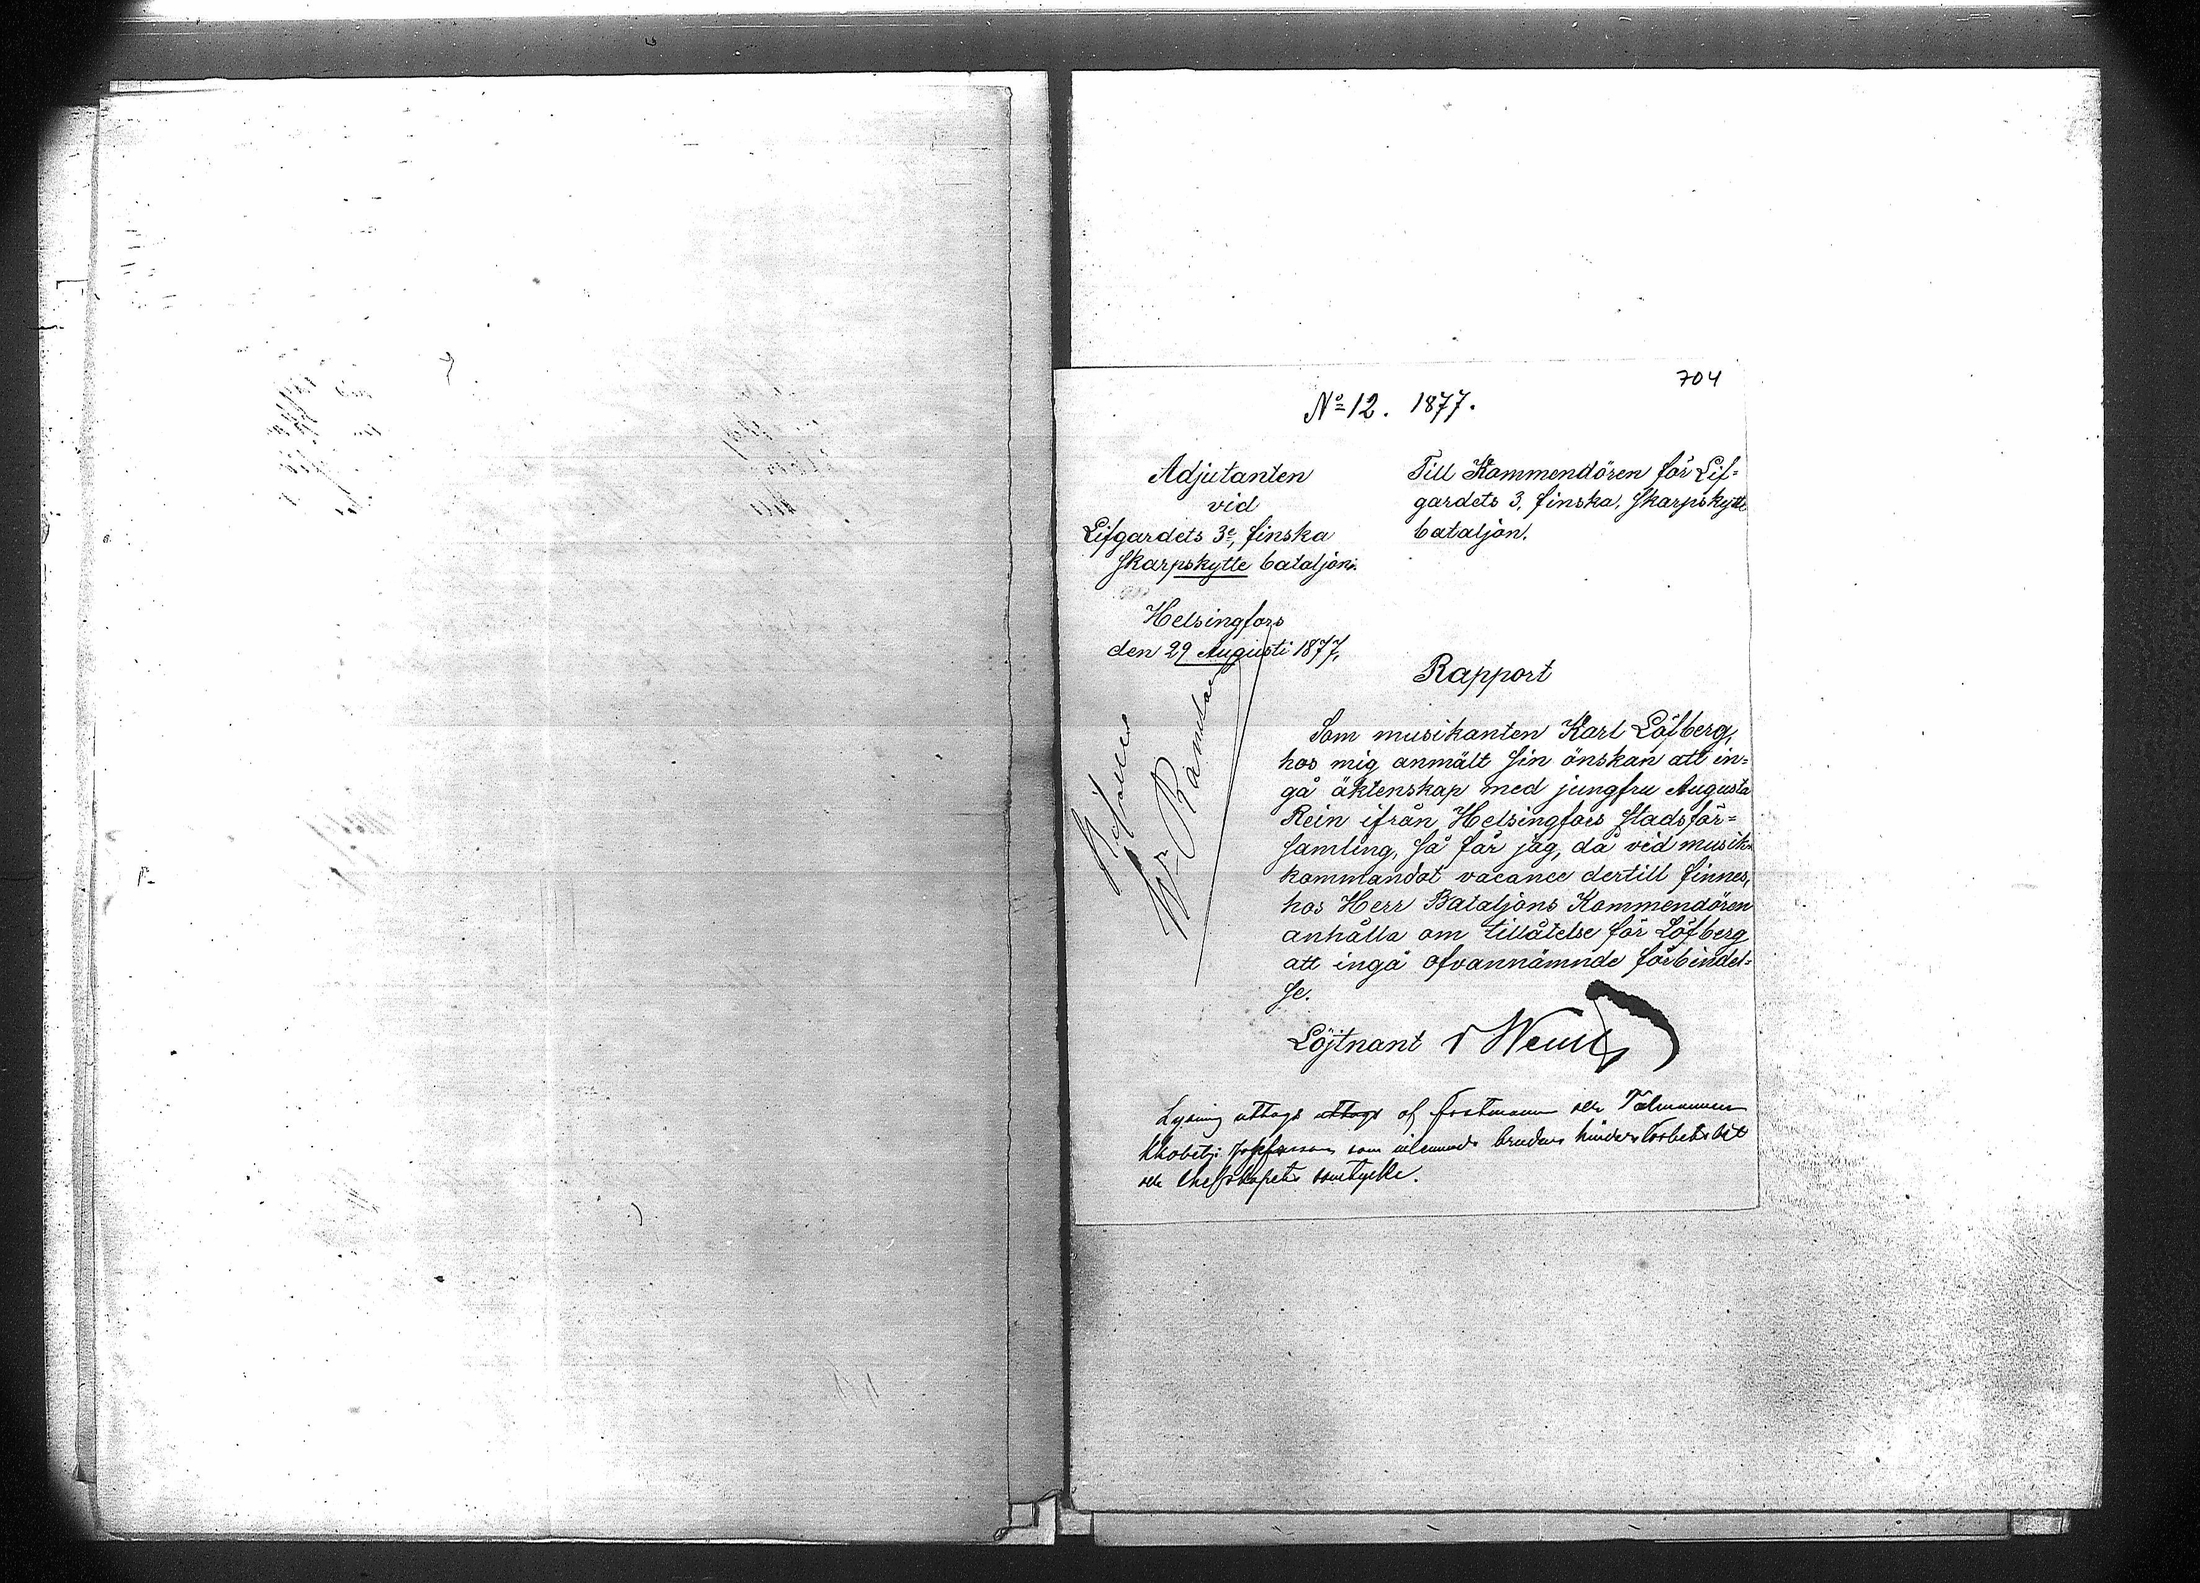 704
No 12. 1877.
Adjutanten
vid
Lifgardets 3e, finska
Skarpskytte bataljon.
Helsingfors
den 29 Augusti 1877.
Till Kommendören för Lif-
gardets 3, finska, Skarpskytte
bataljon.
Rapport
Som musikanten Karl Löfberg,
hos mig anmält sin önskan att in-
gå äktenskap med jungfru Augusta
Rein ifrån Helsingfors stadsför-
samling, så får jag, då vid musik-
kommandot vacance dertill finnes,
hos Herr Bataljons Kommendören
anhålla om tillåtelse för Löfberg
att ingå ofvannämnde förbindel-
se.
Löjtnant
Bifalles
Lysning uttogs uttogs af
som brudens hinderslöshets
samtycke.